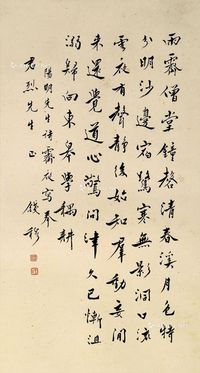 雨霽僧堂鐘磬清春溪月色特
分明沙邊宿鷺寒無影洞口流
雲夜有聲靜後始知羣動妄閒
來還覺道心驚問津久已慚沮
溺歸向東皋學耦耕
陽明先生詩霽夜寫奉
君烈先生 正 錢穆